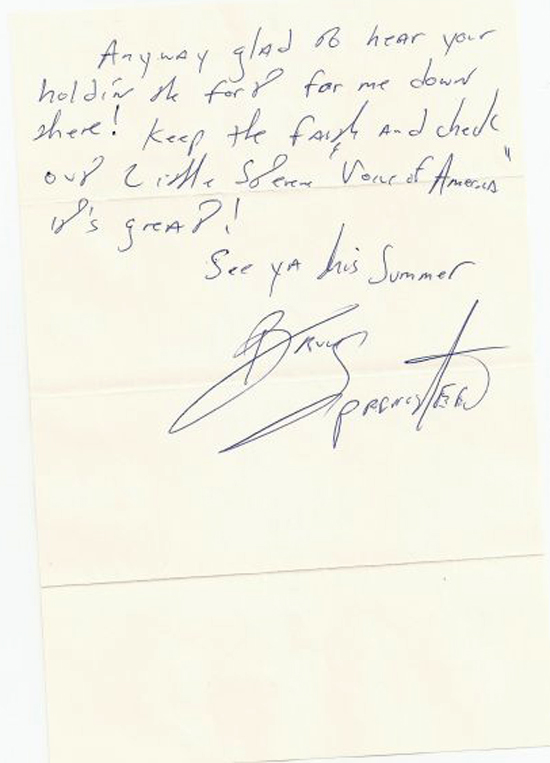 Anyway glad to hear your
holdin the fort for me down
there! Keep the faith and check
out Little Steven "Voice of America"
it's great!
See ya this Summer
Bruce
Springsteen